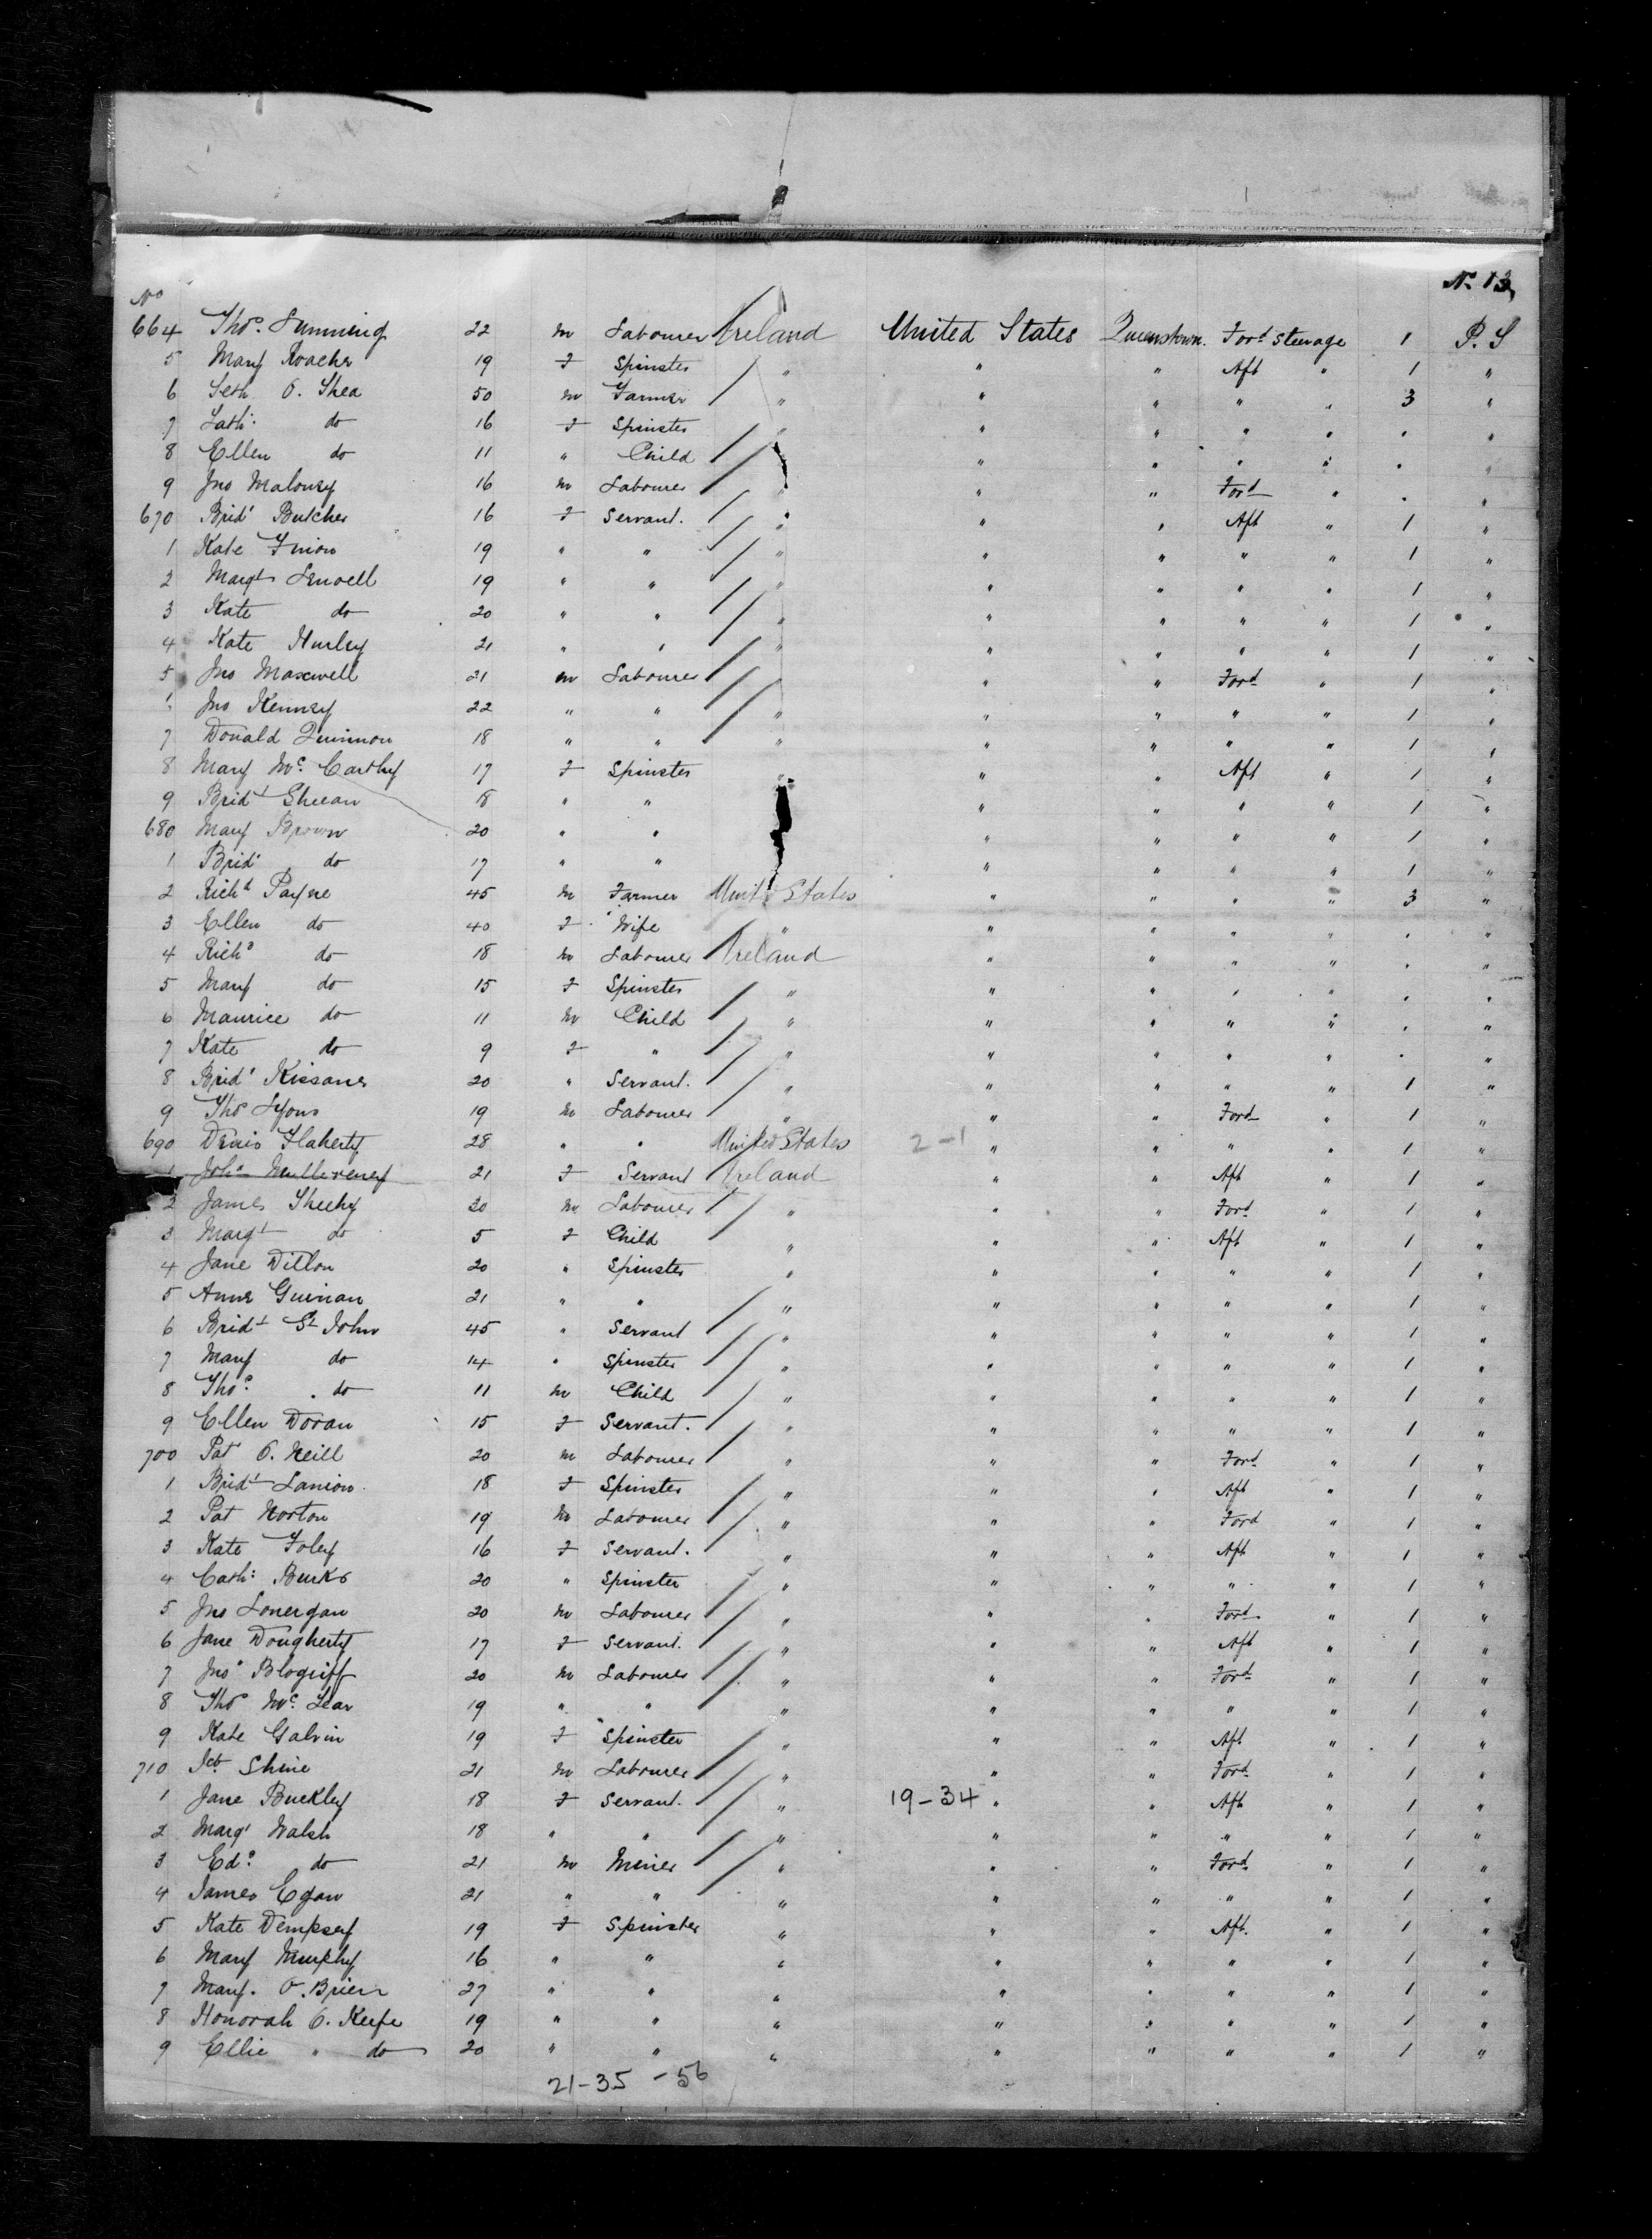 No. 13
No
664 Thos. Lumming 22 m Labourer Ireland United States Queenstown. Ford steerage 1 P. S
5 Mary Roache 19 F Spinster / " " " Aft " 1 "
6 Seth O. Shea 50 m Farmer / " " " " " 3 "
7 Cath: do 16 F Spinster " " " " " " "
8 Ellen do 11 " Child / " " " " " " "
9 Jno Maloney 16 m Labourer / " " " Ford " " "
670 Brid' Butcher 16 F Servant. / " " " Aft " 1 "
1 Kate 19 " " / " " " " " 1 "
2 Margt 19 " " / " " " " " 1 "
3 Kate do 20 " " / " " " " " 1 "
4 Kate Hurley 21 " " / " " " " " 1 "
5 Jno Maxwell 21 m Labourer / " " " Ford " 1 "
Jno Kenney 22 " " / " " " " " 1 "
7 Donald 18 " " " " " " " 1 "
8 Mary Mc. Carthy 17 F Spinster " " " Aft " 1 "
9 Bridt Sheean 18 " " " " " " 1 "
680 Mary Brown 20 " " " " " " 1 "
1 Brid' do 17 " " " " " " 1 "
2 Richd Payne 45 m Farmer Unit States " " " " 3 "
3 Ellen do 40 F Wife " " " " " " "
4 Richd do 18 m Labourer Ireland " " " " " "
5 Mary do 15 F Spinster / " " " " " " "
6 Maurice do 11 m Child / " " " " " " "
7 Kate do 9 F " / " " " " " " "
8 Brid' Kissane 20 " Servant. / " " " " " 1 "
9 Thos Lyons 19 m Labourer / " " " Ford " 1 "
690 Denis Flaherty 28 " " United States 2-1 " " " " 1 "
1 Joha 21 F Servant Ireland " " Aft " 1 "
2 James Sheehy 30 m Labourer / " " " Ford " 1 "
3 Margt do 5 F Child " " " Aft " 1 "
4 Jane Dillon 20 " Spinster " " " " " 1 "
5 Anne Guinan 21 " " / " " " " " 1 "
6 Bridt St John 45 " Servant / " " " " " 1 "
7 Mary do 14 " Spinster / " " " " " 1 "
8 Thos. do 11 m Child / " " " " " 1 "
9 Ellen Doran 15 F Servant. / " " " " " 1 "
700 Pat O. Neill 20 m Labourer / " " " Ford " 1 "
1 Bridt 18 F Spinster / " " " Aft " 1 "
2 Pat Norton 19 m Labourer / " " " Ford " 1 "
3 Kate Foley 16 F Servant. " " " Aft " 1 "
4 Cath: Burke 20 " Spinster / " " " " " 1 "
5 Jno Lonergan 20 m Labourer / " " " Ford " 1 "
6 Jane Dougherty 17 F Servant. / " " " Aft " 1 "
7 Jno 20 m Labourer / " " " Ford " 1 "
8 Thos Mc. Lear 19 " " / " " " " " 1 "
9 Kate Galvin 19 F Spinster / " " " Aft " 1 "
710 Shine 21 m Labourer / " " " Ford " 1 "
1 Jane Buckley 18 F Servant. / " 19-34 " " Aft " 1 "
2 Margt Walsh 18 " " / " " " " " 1 "
3 Edd. do 21 m Miner / " " " Ford " 1 "
4 James Egan 21 " " " " " " " 1 "
5 Kate Dempsey 19 F Spinster " " " Aft. " 1 "
6 Mary Murphy 16 " " " " " " " 1 "
7 Mary. O. Brien 27 " " " " " " " 1 "
8 Honorah O. Keefe 19 " " " " " " " 1 "
9 Ellie " do 20 " " " " " " " 1 "
21-35 -56